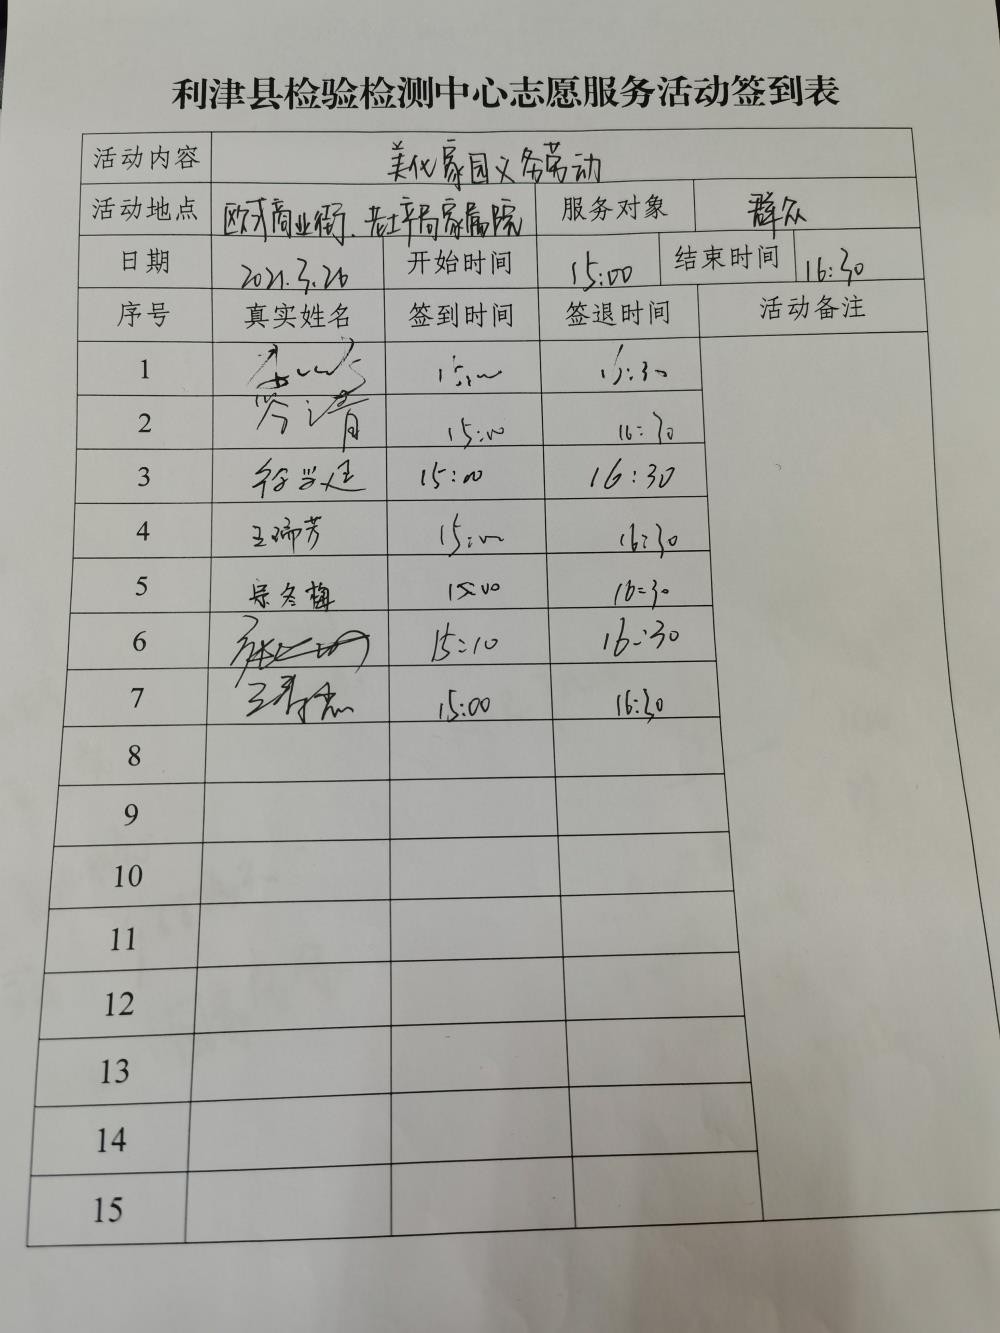 利津县检验检测中心志愿服务活动签到表
活动内容 美化家园义务劳动
活动地点 欧式商业街、老土产局家属院 服务对象 群众
日期 2021.3.26 开始时间 15:00 结束时间 16:30
序号 真实姓名 签到时间 签退时间 活动备注
1 15:00 16:30
2 15:00 16:30
3 15:00 16:30
4 王瑞芳 15:00 16:30
5 宗冬梅 15:00 16:30
6 15:10 16:30
7 15:00 16:30
8
9
10
11
12
13
14
15